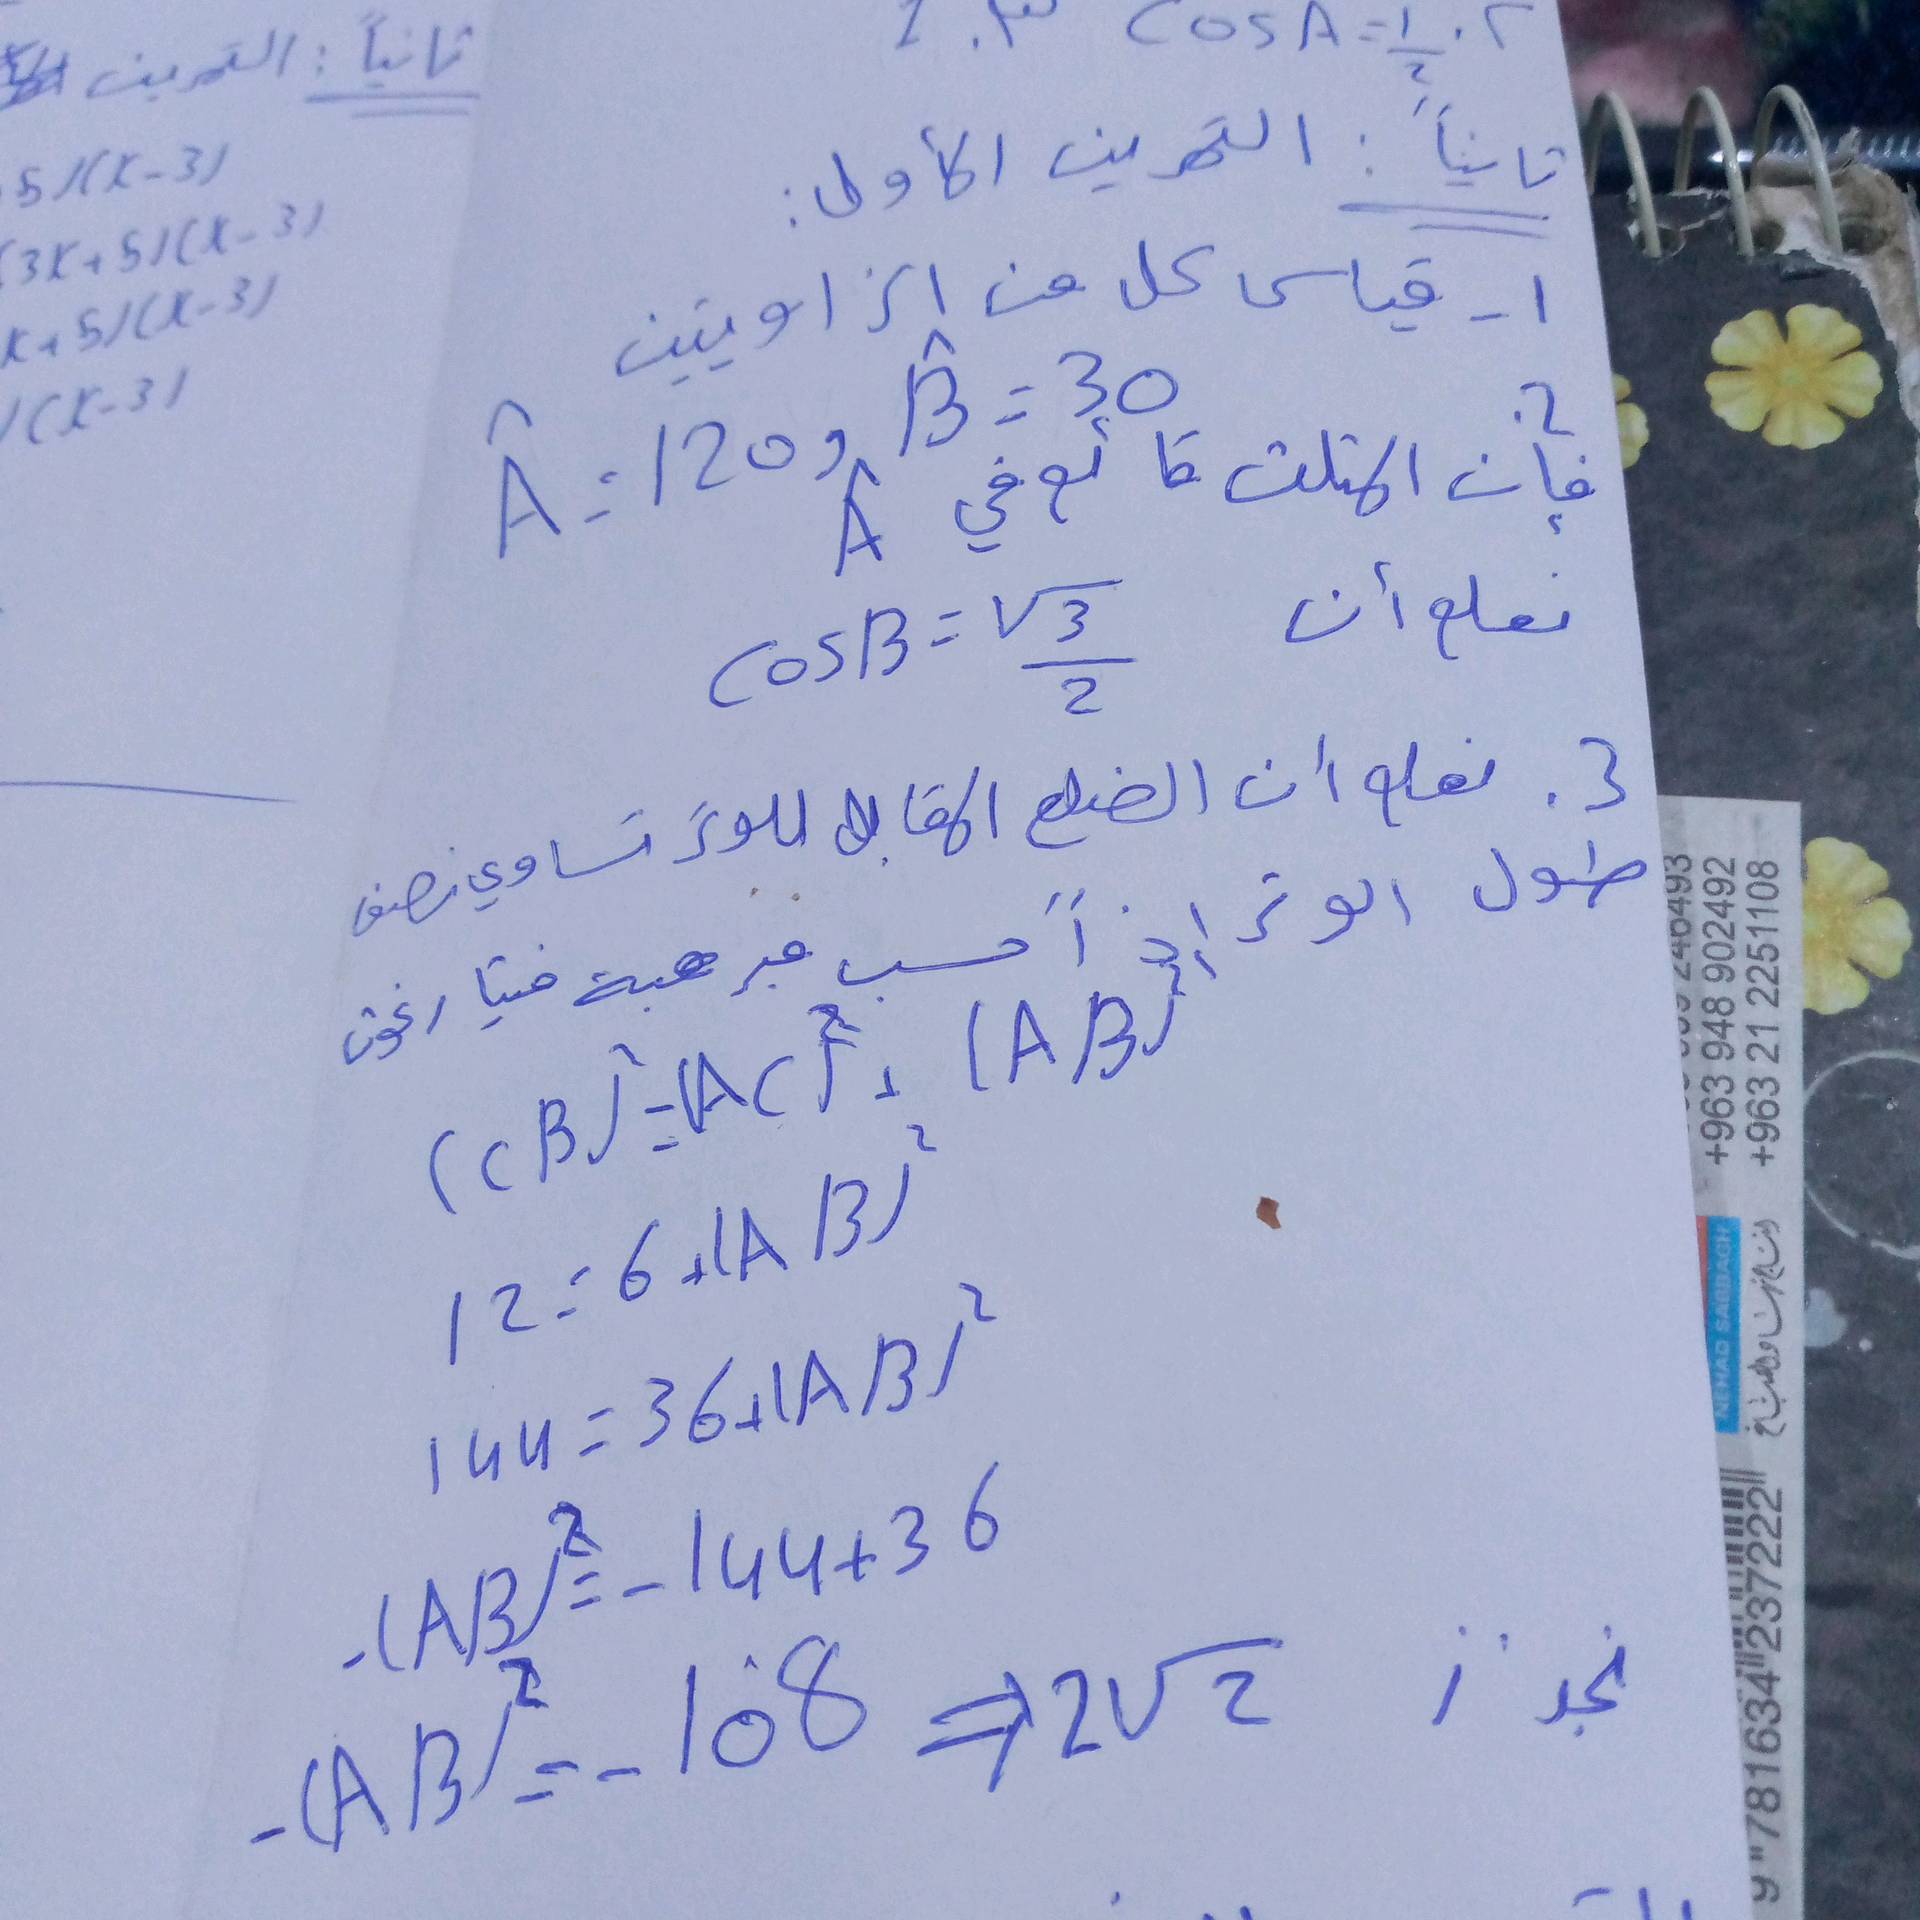 ٢. cos A = 1/2 ٣. I
ثانياً: التمرين الأول:
١- قياس كل من الزاويتين
Â = 120 و B̂ = 30
2.
فإن المثلث قائم في Â
نعلم أن cos B = √3/2
3. نعلم أن الضلع المقابل للوتر تساوي نصف
طول الوتر إذاً حسب مبرهنة فيثاغورث
(CB)² = (AC)² + (AB)²
12 = 6 + (AB)²
144 = 36 + (AB)²
-(AB)² = -144 + 36
-(AB)² = -108 ⇒ 2√2 نجذر
ثانياً: التمرين
5)(x-3)
(3x+5)(x-3)
x+5)(x-3)
)(x-3)
246493
+963 948 902492
+963 21 2251108
NEHAD SABBAGH
9 "781634"237222